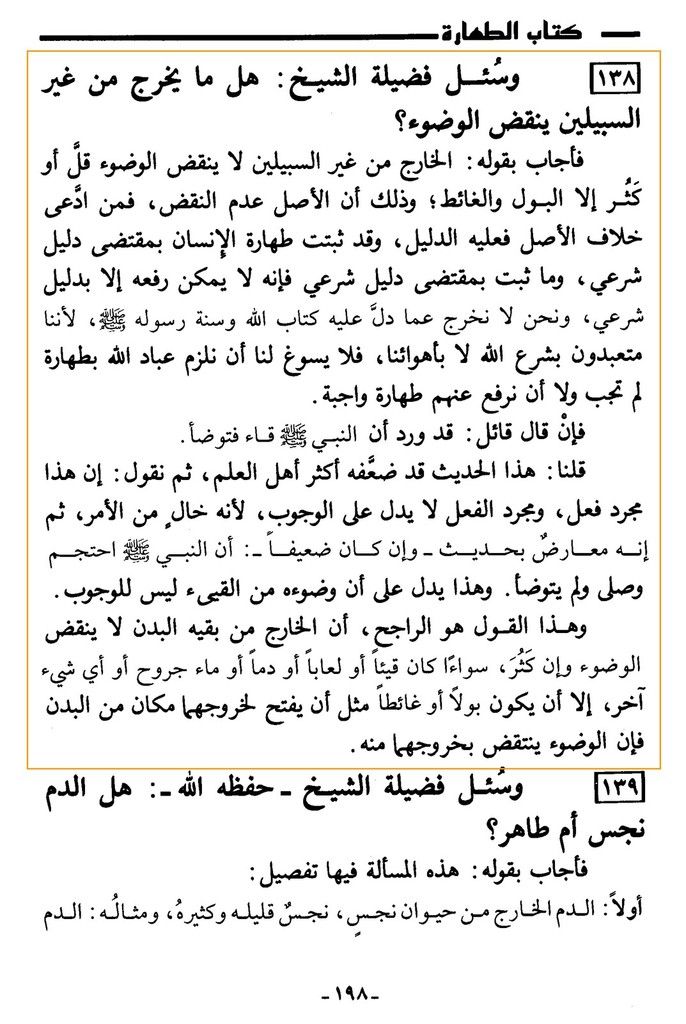 كتاب الطهارة
١٣٨ وسُئل فضيلة الشيخ: هل ما يخرج من غير
السبيلين ينقض الوضوء؟
فأجاب بقوله: الخارج من غير السبيلين لا ينقض الوضوء قلَّ أو
كَثُر إلا البول والغائط؛ وذلك أن الأصل عدم النقض، فمن ادَّعى
خلاف الأصل فعليه الدليل، وقد ثبتت طهارة الإنسان بمقتضى دليل
شرعي، وما ثبت بمقتضى دليل شرعي فإنه لا يمكن رفعه إلا بدليل
شرعي، ونحن لا نخرج عما دلَّ عليه كتاب الله وسنة رسوله ﷺ، لأننا
متعبدون بشرع الله لا بأهوائنا، فلا يسوغ لنا أن نلزم عباد الله بطهارة
لم تجب ولا أن نرفع عنهم طهارة واجبة.
فإنْ قال قائل: قد ورد أن النبي ﷺ قاء فتوضأ.
قلنا: هذا الحديث قد ضعَّفه أكثر أهل العلم، ثم نقول: إن هذا
مجرد فعل، ومجرد الفعل لا يدل على الوجوب، لأنه خالٍ من الأمر، ثم
إنه معارضٌ بحديث ـ وإن كان ضعيفاً ـ: أن النبي ﷺ احتجم
وصلى ولم يتوضأ. وهذا يدل على أن وضوءه من القيء ليس للوجوب.
وهذا القول هو الراجح، أن الخارج من بقيه البدن لا ينقض
الوضوء وإن كَثُرَ، سواءًا كان قيئاً أو لعاباً أو دماً أو ماء جروح أو أي شيء
آخر، إلا أن يكون بولاً أو غائطاً مثل أن يفتح لخروجهما مكان من البدن
فإن الوضوء ينتقض بخروجهما منه.
١٣٩ وسُئل فضيلة الشيخ ـ حفظه الله ـ: هل الدم
نجس أم طاهر؟
فأجاب بقوله: هذه المسألة فيها تفصيل:
أولاً: الدم الخارج من حيوان نجسٍ، نجسٌ قليله وكثيرهُ، ومثالُه: الدم
-١٩٨-